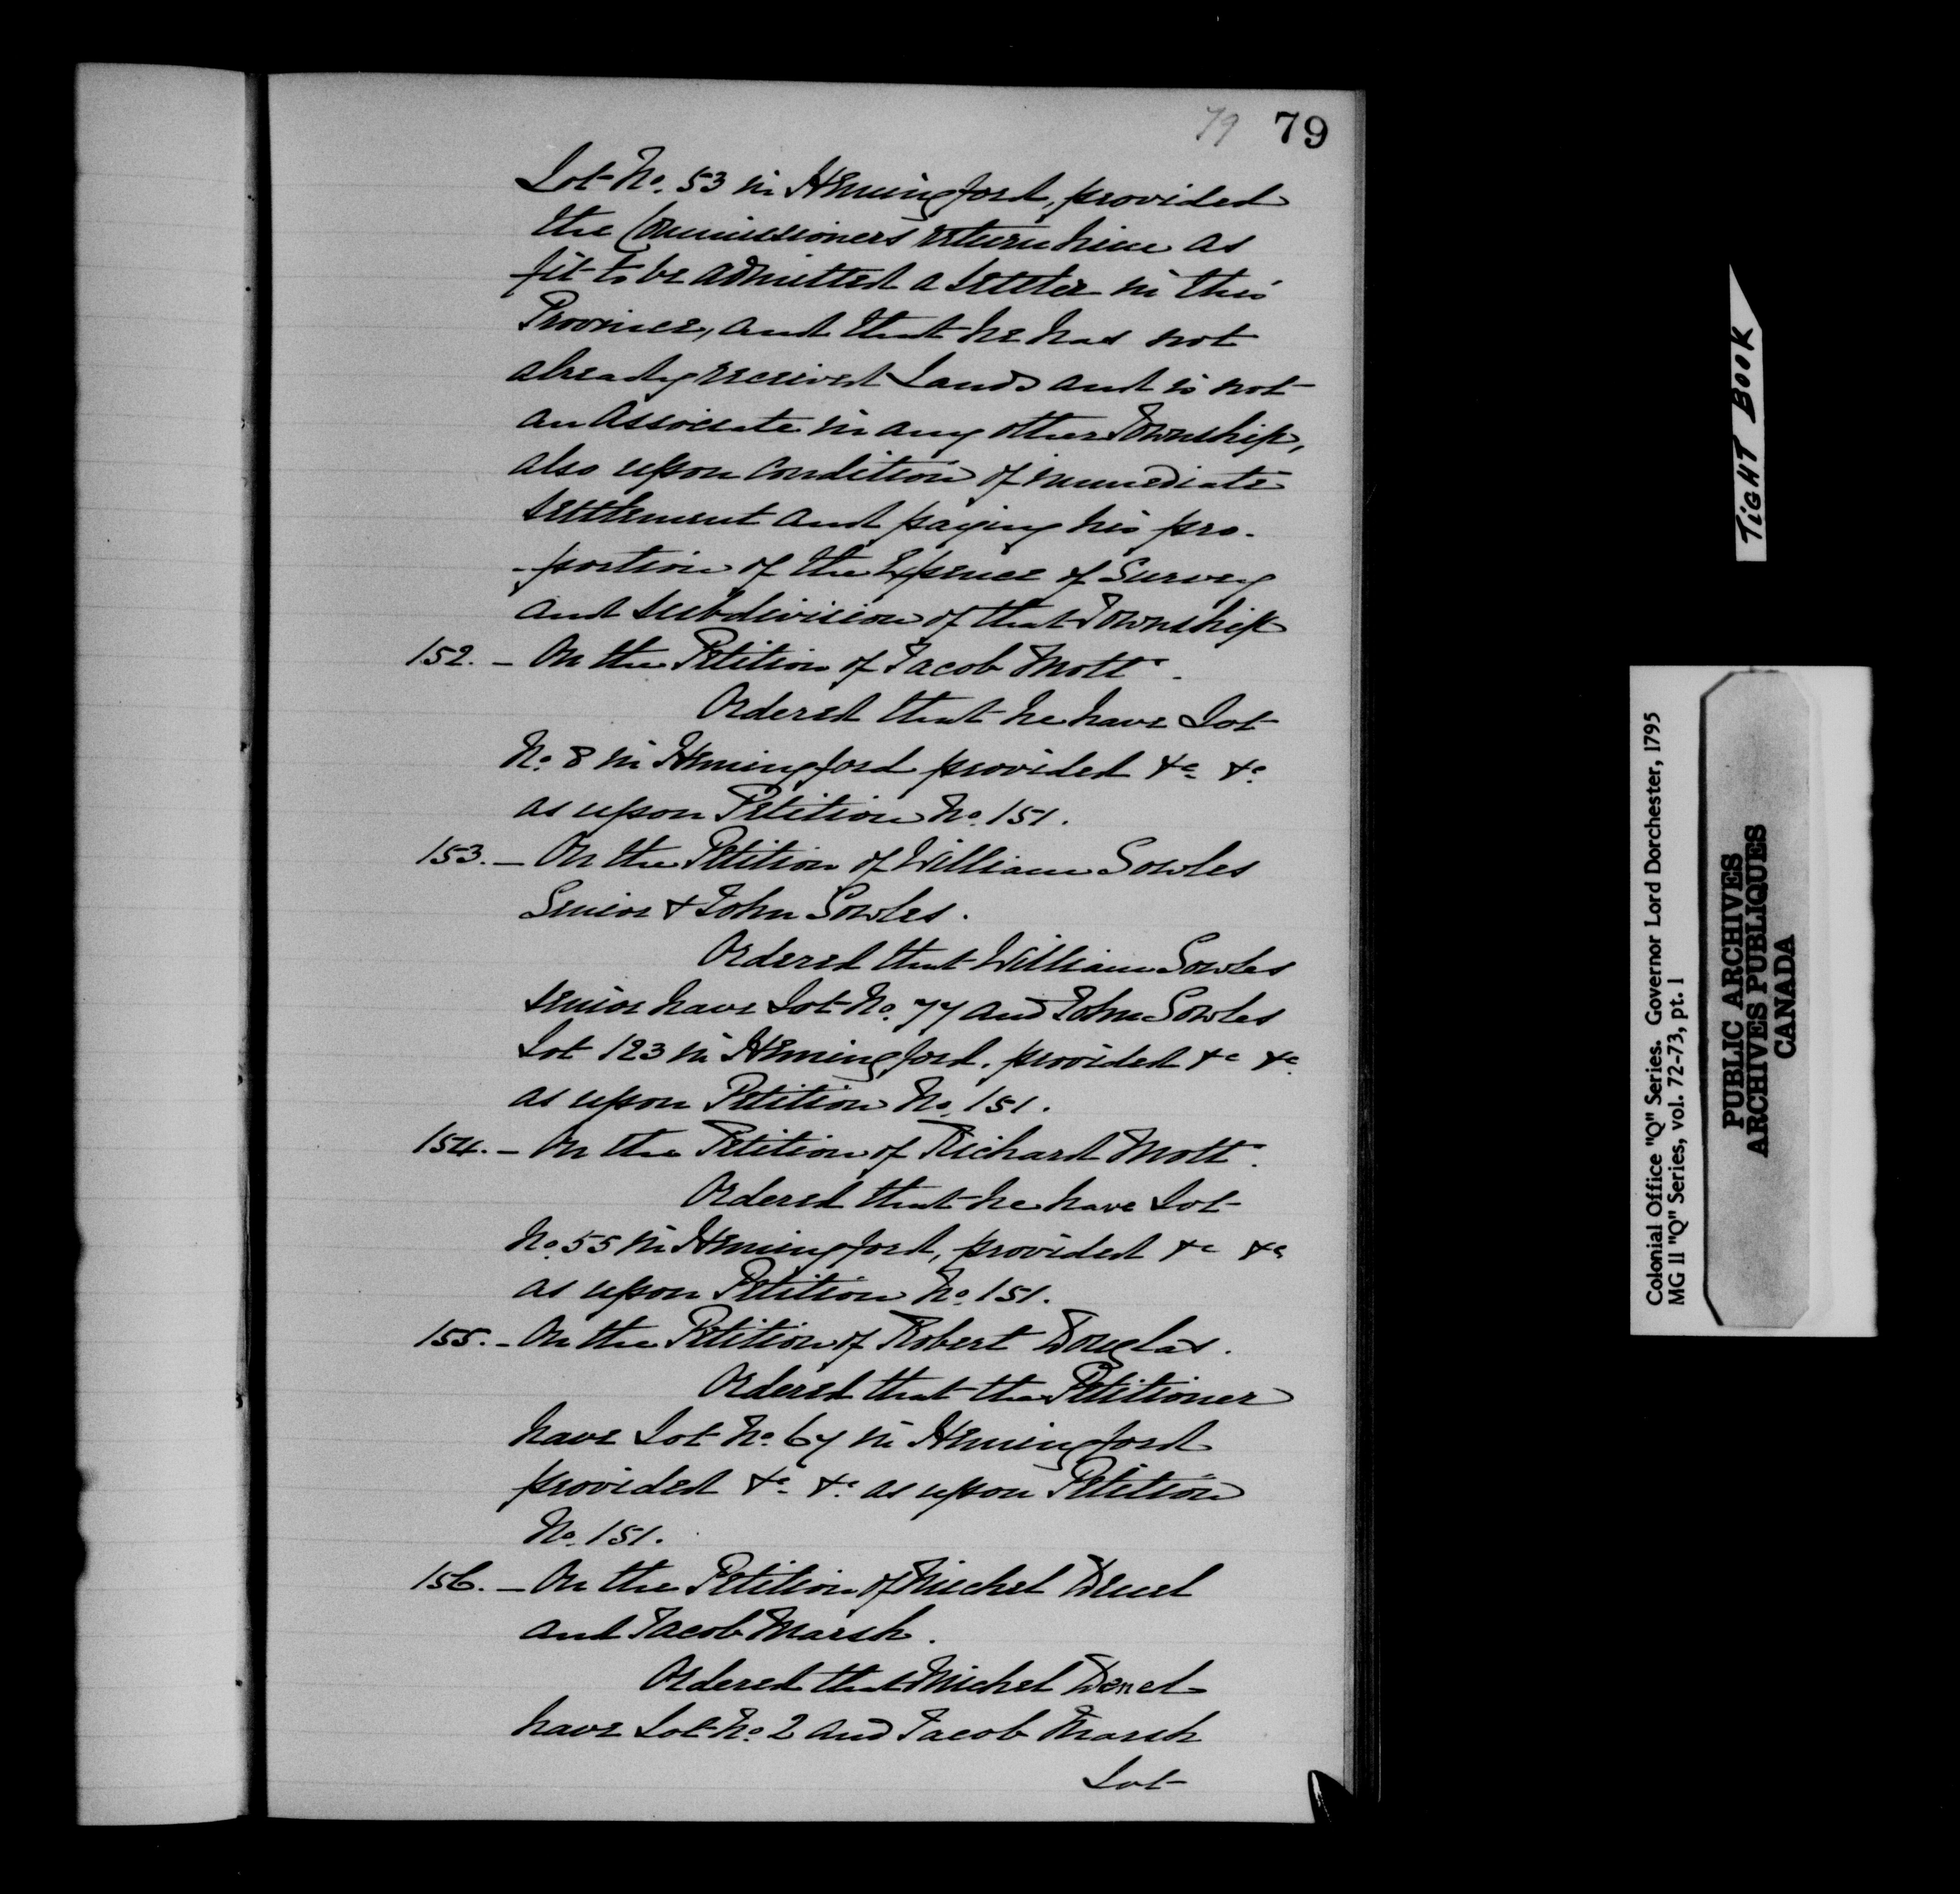 79 79
Lot No. 53 in Hemingford, provided
the Commissioners return him as
fit to be admitted a settler in this
Province, and that he has not
already received Lands and is not
an associate in any other Township,
also upon condition of immediate
settlement and paying his pro-
-portion of the Expence of Survey
and subdivision of that Township
152. - On the Petition of Jacob Mott.
Ordered that he have Lot
No. 8 in Hemingford provided &c. &c.
as upon Petition No. 151.
153. - On the Petition of William Sowles
Senior & John Sowles.
Ordered that William Sowles
senior have Lot No. 77 and John Sowles
Lot 123 in Hemingford. provided &c &c.
as upon Petition No. 151.
154. - On the Petition of Richard Mott.
Ordered that he have Lot
No. 55 in Hemingford, provided &c &c
as upon Petition No. 151.
155. - On the Petition of Robert Douglas.
Ordered that the Petitioner
have Lot No. 67 in Hemingford
provided &c. &c. as upon Petition
No. 151.
156. - On the Petition of Michel
and Jacob Marsh.
Ordered that Michel
have Lot No. 2 and Jacob Marsh
Lot
TIGHT BOOK
Colonial Office "Q" Series. Governor Lord Dorchester, 1795
MG II "Q" Series, vol. 72-73, pt. I
PUBLIC ARCHIVES
ARCHIVES PUBLIQUES
CANADA